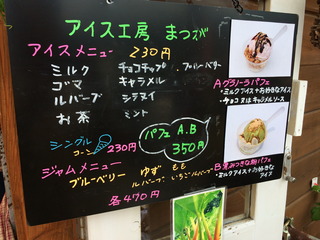 アイス工房 まつえび
アイスメニュー 230円
ミルク チョコチップ ・ブルーベリー
ゴマ キャラメル
ルバーブ シナモン
お茶 ミント
シングル
コーン 230円
パフェ A.B
350円
ジャムメニュー
ブルーベリー ゆず もも
ルバーブ いちごルバーブ
各470円
Aグラノーラパフェ
・ミルクアイス+お好きなアイス
・チョコ又はキャラメルソース
・ミルクアイス+お好きな
アイス